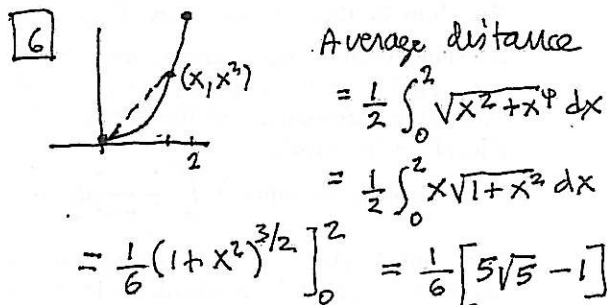 6
(x, x²)
2
Average distance
= 1/2 ∫₀² √(x² + x⁴) dx
= 1/2 ∫₀² x√(1+x²) dx
= 1/6 (1+x²)^(3/2) ]₀² = 1/6 [5√5 − 1]